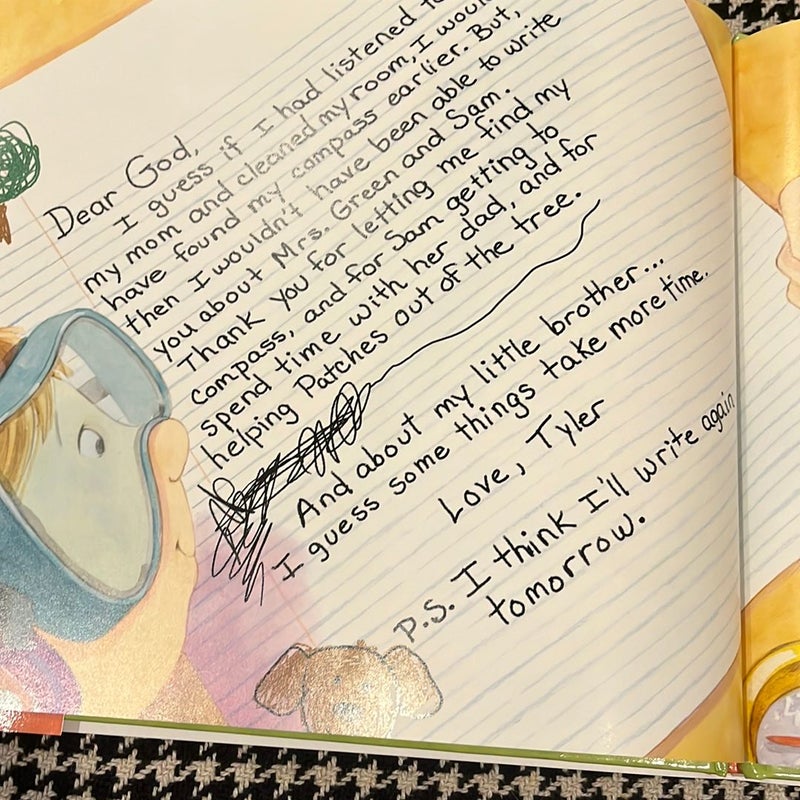 Dear God,
I guess if I had listened to
my mom and cleaned my room, I would
have found my compass earlier. But,
then I wouldn't have been able to write
you about Mrs. Green and Sam.
Thank you for letting me find my
compass, and for Sam getting to
spend time with her dad, and for
helping Patches out of the tree.
And about my little brother...
I guess some things take more time.
Love, Tyler
P.S. I think I'll write again
tomorrow.